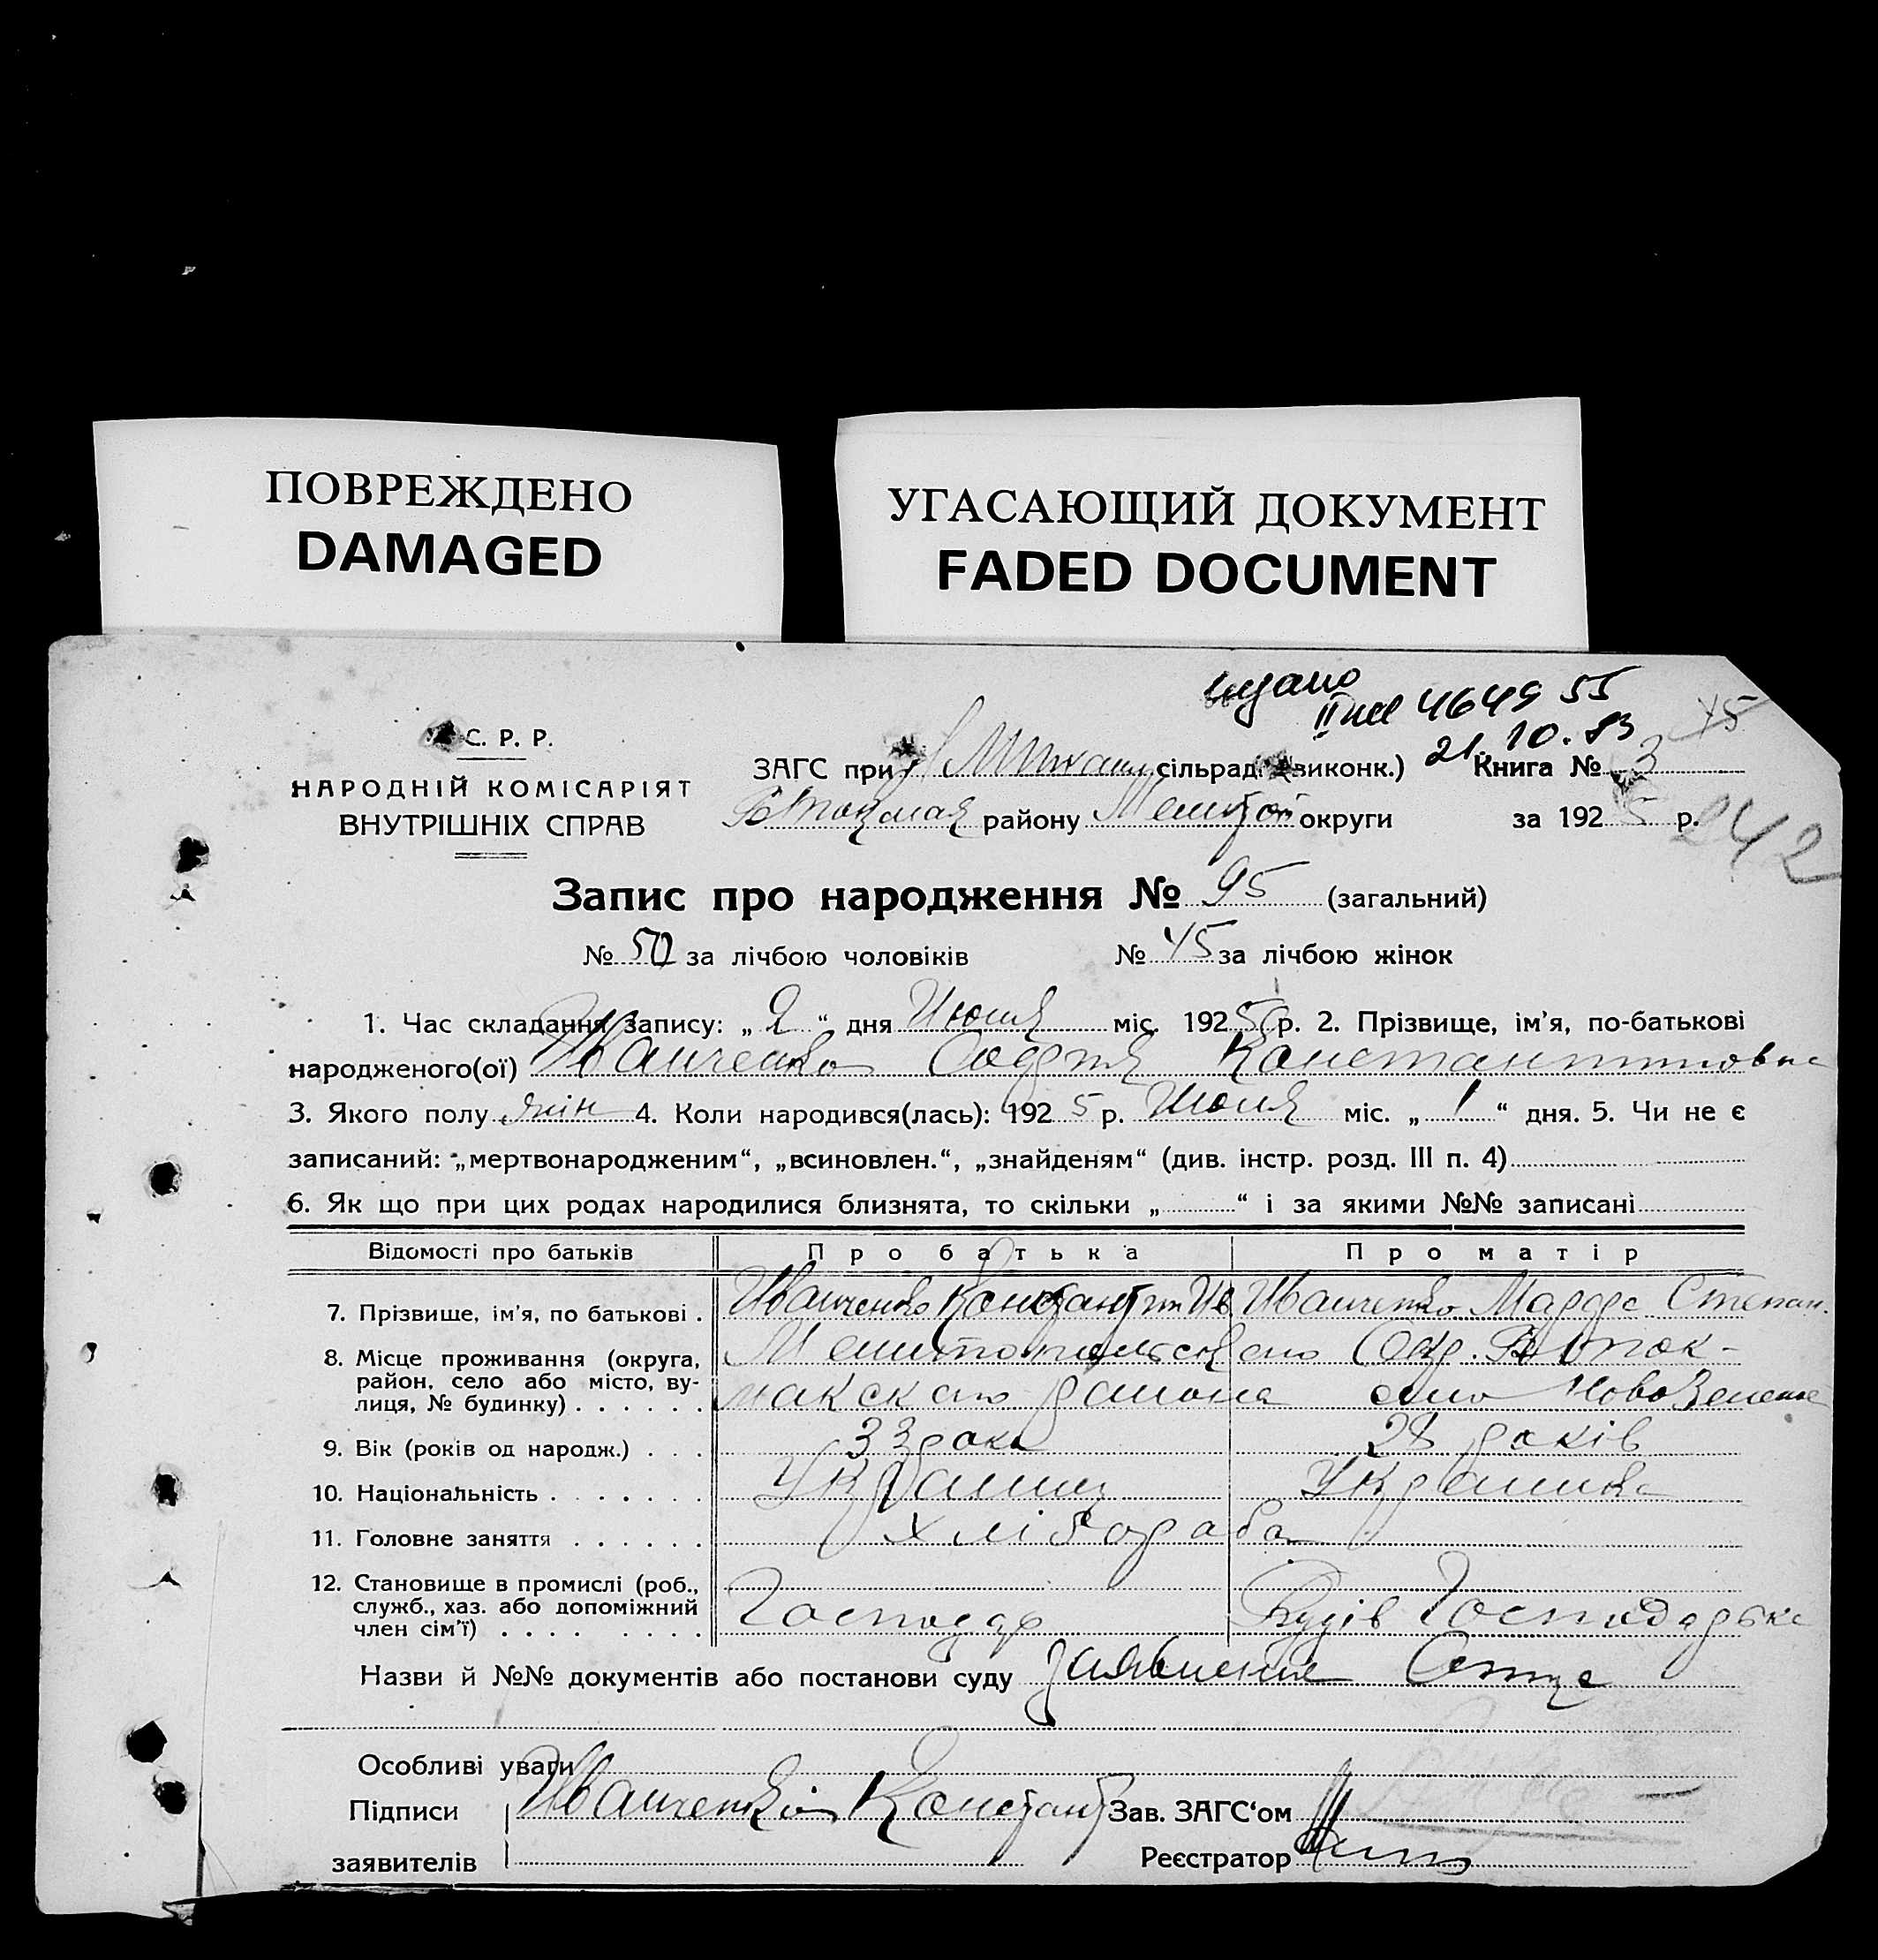 ПОВРЕЖДЕНО
DAMAGED
УГАСАЮЩИЙ ДОКУМЕНТ
FADED DOCUMENT
464955
21.10.83
45
С. Р. Р.
НАРОДНІЙ КОМІСАРІЯТ
ВНУТРІШНІХ СПРАВ
ЗАГС при сільрад виконк.) Книга № 3
району округи за 1925 р.
242
Запис про народження № 95 (загальний)
№ 50 за лічбою чоловіків № 45 за лічбою жінок
1. Час складання запису: „ 2 “ дня Июня міс. 1925 р. 2. Прізвище, ім’я, по-батькові
народженого(ої) Иванченко Константиновна
3. Якого полу жін 4. Коли народився(лась): 1925 р. Июня міс. „ 1 “ дня. 5. Чи не є
записаний: „мертвонародженим“, „всиновлен.“, „знайденям“ (див. інстр. розд. III п. 4)
6. Як що при цих родах народилися близнята, то скільки „ “ і за якими №№ записані
Відомості про батьків Про батька Про матір
7. Прізвище, ім’я, по батькові . Иванченко Константин Ив. Иванченко Марфа Степан.
8. Місце проживання (округа, Мелитопольского Окр. Б Ток-
район, село або місто, ву- макского района село НовоЗеленое
лиця, № будинку) . . . . . .
9. Вік (років од народж.) . . . 33 роки 28 років
10. Національність . . . . . . . Українец Українка
11. Головне заняття . . . . . . хлібороба
12. Становище в промислі (роб.,
служб., хаз. або допоміжний Господар Господарька
член сім’ї) . . . . . . . .
Назви й №№ документів або постанови суду заявление Отца
Особливі уваги
Підписи Иванченко Констант Зав. ЗАГС‘ом
заявителів Реєстратор